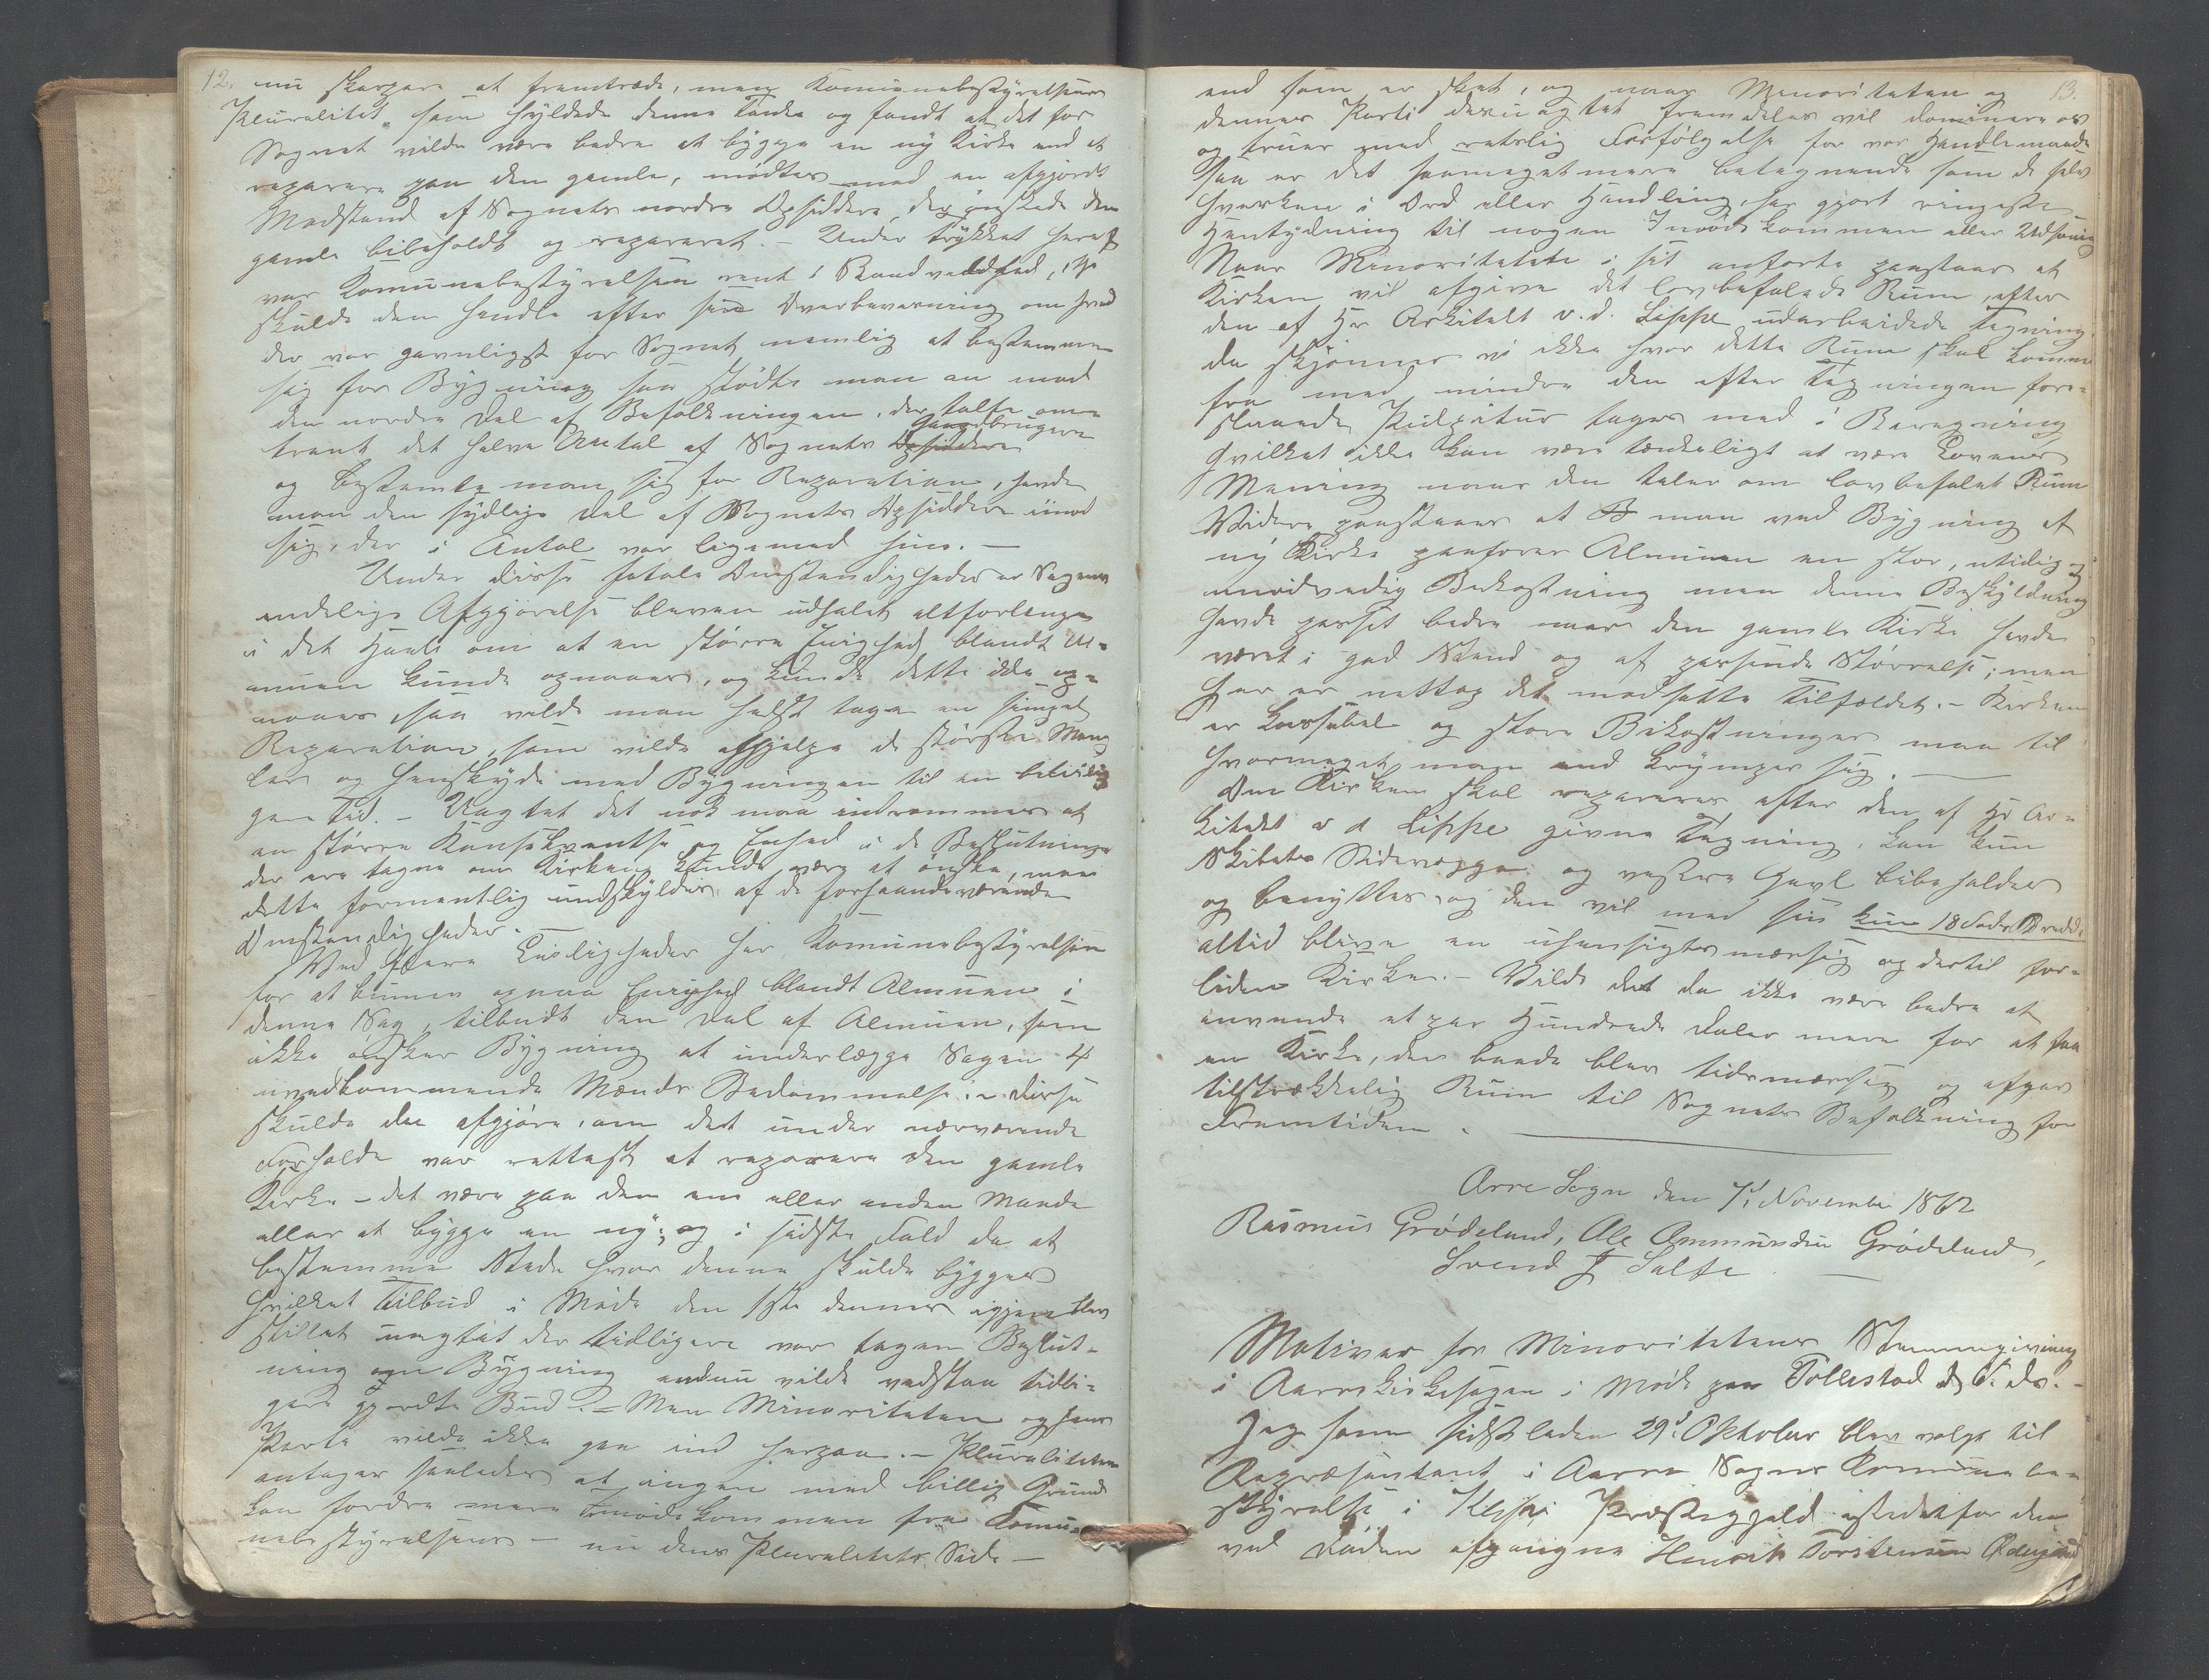 12.
nu skarpere at fremtræde, men Komunebestyrelsens
Pluralitet som hyldede denne Tanke og fandt at det for
Sognet vilde være bedre at bygge en ny Kirke end at
reparere paa den gamle, mödtes med en afgjördt
Modstand af Sognets nordre Opsiddere, der önskede den
gamle bibeholdt og repareret. – Under Trykket heraf
var Komunebestyrelsen rent i Raadveldhed, thi
skulde den handle efter sin Overbeviisning om hvad
der var gavnligst for Sognet nemlig at bestemme
sig for Bygning saa stödte man an mod
den nordre Del af Befolkningen, der talte om-
trent det halve Antal af Sognets Opsiddere Gaardbrugere
og bestemte man sig for Reparation, havde
man den sydlige Del af Sognets Opsiddere imod
sig, der i Antal var ligemed hine. –
Under disse fatale Omstændigheder er Sagens
endelige Afgjörelse bleven udhalet altforlenge
i det Haab om at en större Enighed blandt Al-
muen kunde opnaaes, og kunde dette ikke op-
naaes saa vilde man helst tage en simpel
Reparation, som vilde afhjelpe de störste Mang
ler og henskyde med Bygningen til en beleilig
gere Tid. – Uagtet det nok maa indrømmes at
en större Konsekventse og Enhed i de Beslutninger
der ere tagne om Kirken kunde være at önske, men
dette formentlig undskyldes af de forhaandenværende
Omstendigheder. –
Ved flere Leiligheder har Komunebestyrelsen
for at kunne opnaa Enighed blandt Almuen i
denne Sag, tilbudt den Del af Almuen, som
ikke önsker Bygning at underlægge Sagen 4
uvedkommende Mænds Bedömmelse. – Disse
skulde da afgjöre, om det under nærværende
Forholde var rettest at reparere den gamle
Kirke – det være paa den ene eller anden Maade
eller at bygge en ny; og i sidste Fald da at
bestemme Stedet hvor denne skulde bygges
hvilket Tilbud i Möde den 1ste dennes igjen blev
stillet uagtet der tidligere var tagen Beslut-
ning om Bygning endnu vilde vedstaa tidli-
gere gjordte Bud. – Men Minoriteten og hans
Parti vilde ikke gaa ind herpaa. – Pluraliteten
antager saaledes at ingen med billig Grund
kan fordre mere Imödekommen fra Komu-
nebestyrelsens – nu dens Pluralitets Side –
13.
end som er skeet, og naar Minoriteten og
dennes Parti desuagtet fremdeles vil dominere os
og truer med retslig Forfölgelse for vor Handlemaade
saa er det saameget mere betegnende som de selv
hverken i Ord eller Handling, har gjort ringeste
Hentydning til nogen Imödekommen eller Udsoning
Naar Minoriteten i sit anförte paastaar at
Kirken vil afgive det lovbefalede Rum, efter
den af Hr Arkitekt v. d. Lippe udarbeidede Tegning
da skjönner vi ikke hvor dette Rum skal komme
fra med mindre den efter Tegningen fore-
staaende Pulpitur tages med i Beregning
hvilket ikke kan være tænkeligt at være Lovens
Mening naar den taler om lovbefalet Rum
Videre paastaaes at man ved Bygning af
ny Kirke paaförer Almuen en stor, utidig og
unödvendig Bekostning men denne Beskyldning
havde passet bedre naar den gamle Kirke havde
været i god Stand og af passende Störrelse; men
her er nettop det modsatte Tilfældet. – Kirken
er kassabel og store Bekostninger maa til
hvormeget man end krymper sig. –
Om Kirken skal repareres efter den af Hr Ar-
kitekt v d Lippe givne Tegning, kan kun
Skibets Sidevægge og vestre Gavl bibeholdes
og benyttes, og den vil med sin kun 18 Fods Bredde
altid blive en uhensigtsmæssig og dertil for-
liden Kirke. – Vilde det da ikke være bedre at
anvende et par Hundrede Daler mere for at faa
en Kirke, der baade blev tidsmæssig og afgav
tilstrækkelig Rum til Sognets Befolkning for
Fremtiden.
Orre Sogn den 7d November 1862
Rasmus Grødeland, Ole Ommundsen Grødeland,
Svend J Salte –
Motiver for Minoritetens Stemmegivning
i Aarrekirkesagen i Möde paa Tollestad d. 1. ds. –
Jeg som sidstleden 29d Oktober blev valgt til
Repræsentant i Aarre Sogns Komunebe-
styrelse i Kleppe Præstegjeld istedetfor den
ved Döden afgangne Henrik Torstensen